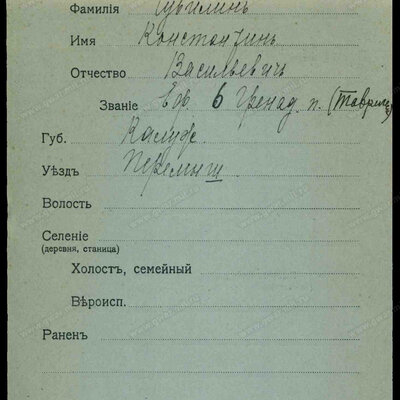 Фамилія Цувилинъ
Имя Константинъ
Отчество Васильевичъ
Званіе 6 Гренад. п. (Таврич
Губ. Калуж
Уѣздъ Перемыш
Волость
Селеніе
(деревня, станица)
Холостъ, семейный
Вѣроисп.
Раненъ